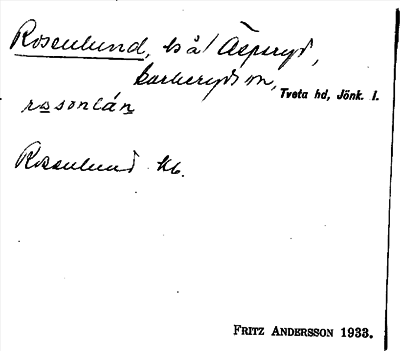 Rosenlund, ls å/ Äsperyd,
Barkeryds sn,
Tveta hd, Jönk. l.
rosonlán
Rosenlund Kb.
FRITZ ANDERSSON 1933.